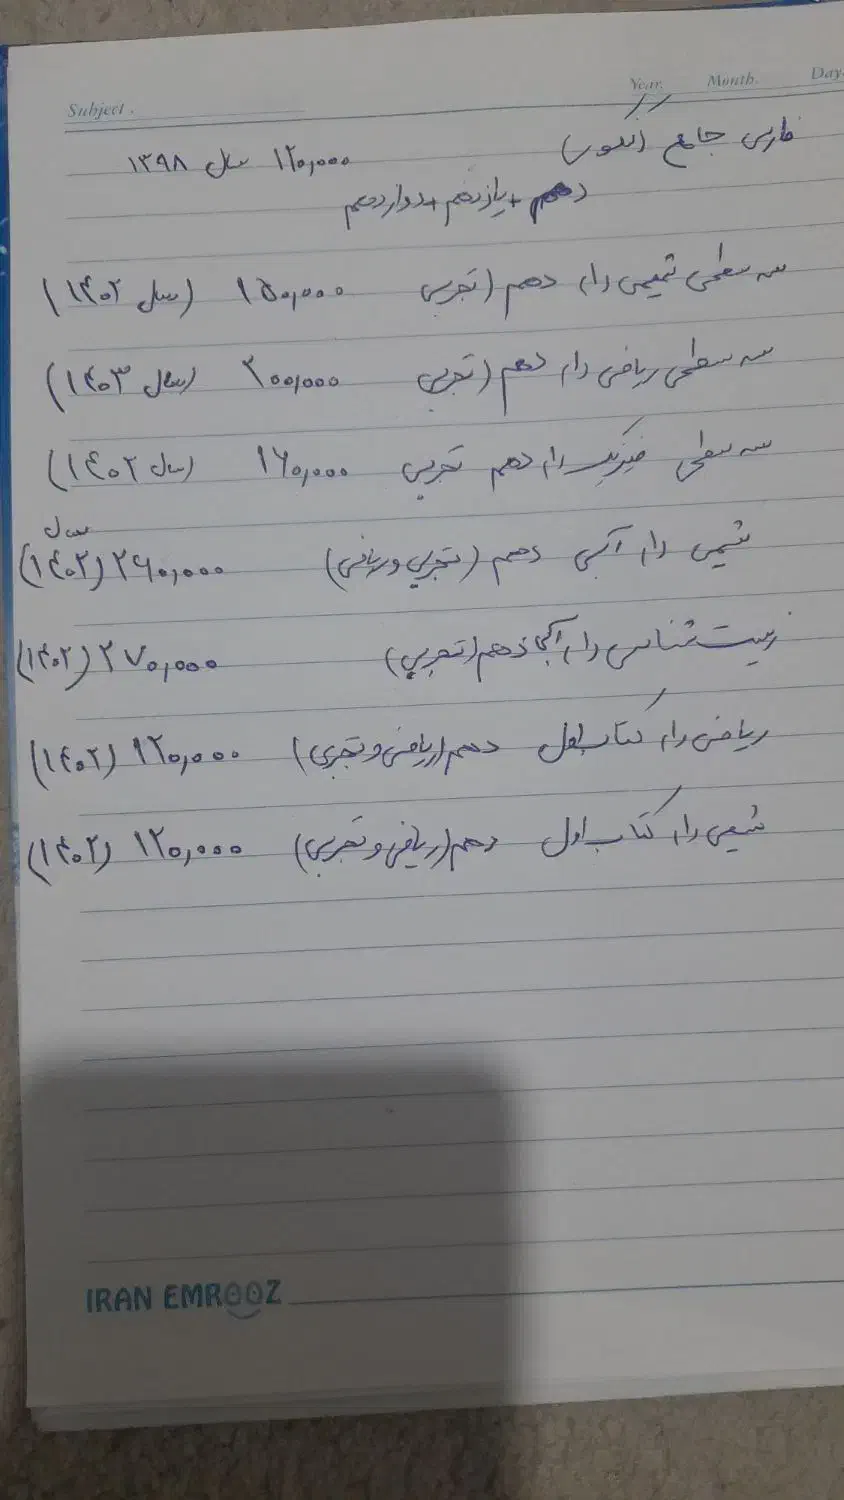 Subject . Year. Month. Day.
فارسی جامع (کنکور) ۱۲۰,۰۰۰ سال ۱۳۹۸
دهم + یازدهم + دوازدهم
سه سطحی شیمی دام دهم (تجربی ۱۵۰,۰۰۰ (سال ۱۴۰۲)
سه سطحی ریاضی دام دهم (تجربی ۲۰۰,۰۰۰ (سال ۱۴۰۳)
سه سطحی فیزیک دام دهم تجربی ۱۶۰,۰۰۰ (سال ۱۴۰۲)
شیمی دام آبی دهم (تجربی و ریاضی) ۲۶۰,۰۰۰ (سال ۱۴۰۲)
زیست شناسی دام آبی دهم (تجربی) ۲۷۰,۰۰۰ (۱۴۰۲)
ریاضی دام کتاب اول دهم (ریاضی و تجربی) ۱۲۰,۰۰۰ (۱۴۰۲)
شیمی دام کتاب اول دهم (ریاضی و تجربی) ۱۲۰,۰۰۰ (۱۴۰۲)
IRAN EMROOZ